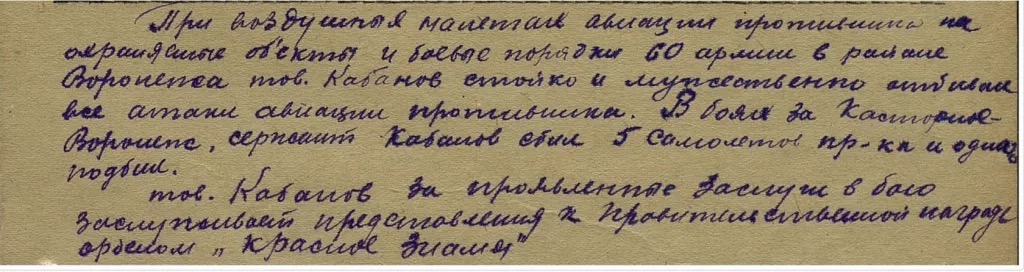 При воздушных налетах авиации противника на
охраняемые объекты и боевые порядки 60 армии в районе
Воронежа тов. Кабанов стойко и мужественно отбивал
все атаки авиации противника. В боях за Касторное-
Воронеж, сержант Кабанов сбил 5 самолетов пр-ка и один
подбил.
тов. Кабанов за проявленные заслуги в бою
заслуживает представления к правительственной награде
орденом „Красное Знамя"